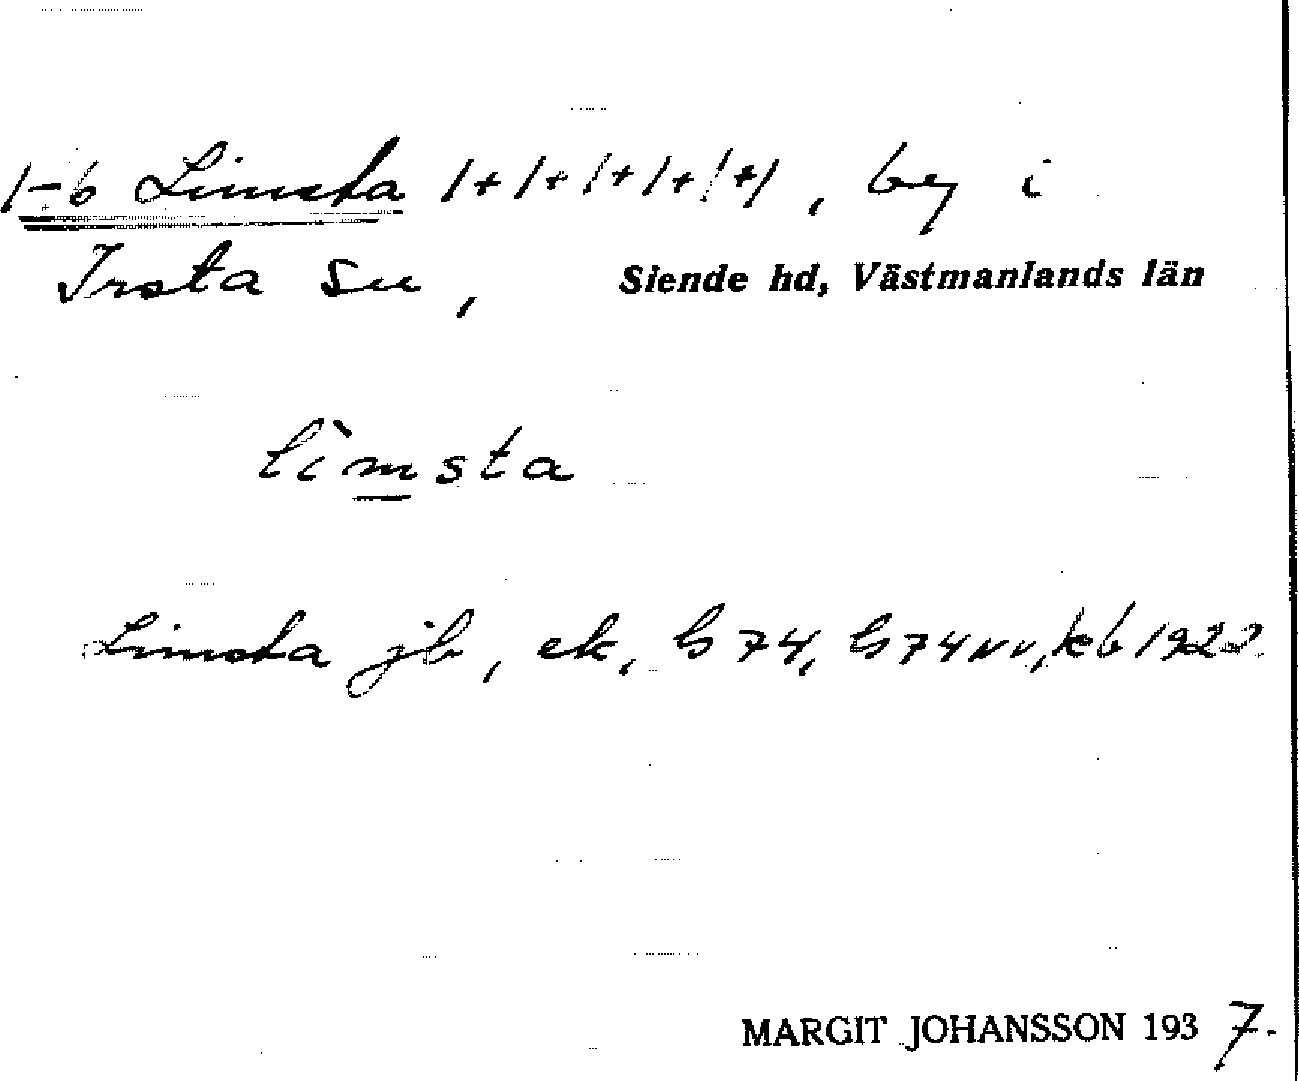 1-6 Limsta 1+1+1+1+1+1, by i
Irsta sn, Siende hd, Västmanlands län
lìmsta
Limsta jb, ek, G 74, G 74 NV, kb 1922.
MARGIT JOHANSSON 1937.